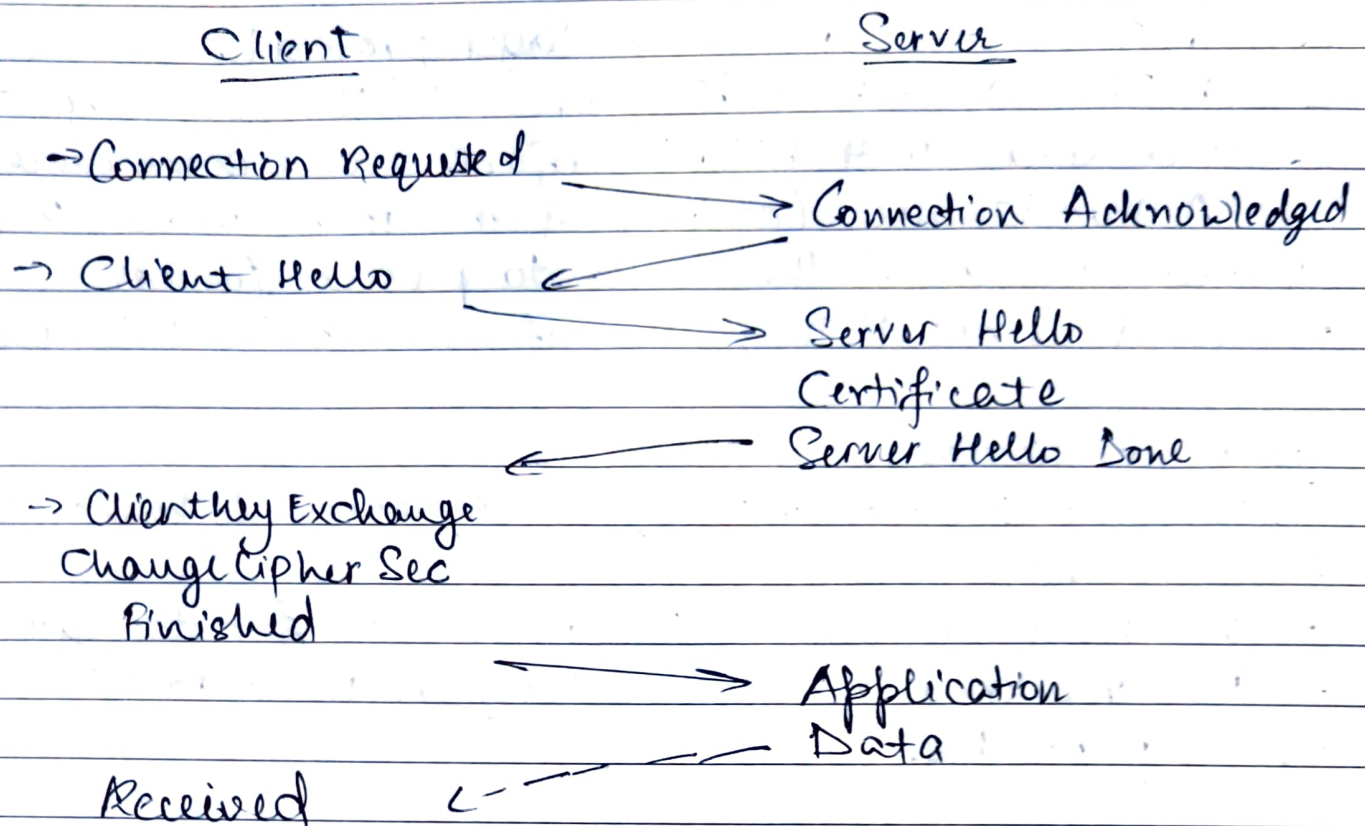 Client Server
→ Connection Requested
Connection Acknowledged
→ Client Hello
Server Hello
Certificate
Server Hello Done
→ Clientkey Exchange
Change Cipher Sec
Finished
Application
Data
Received